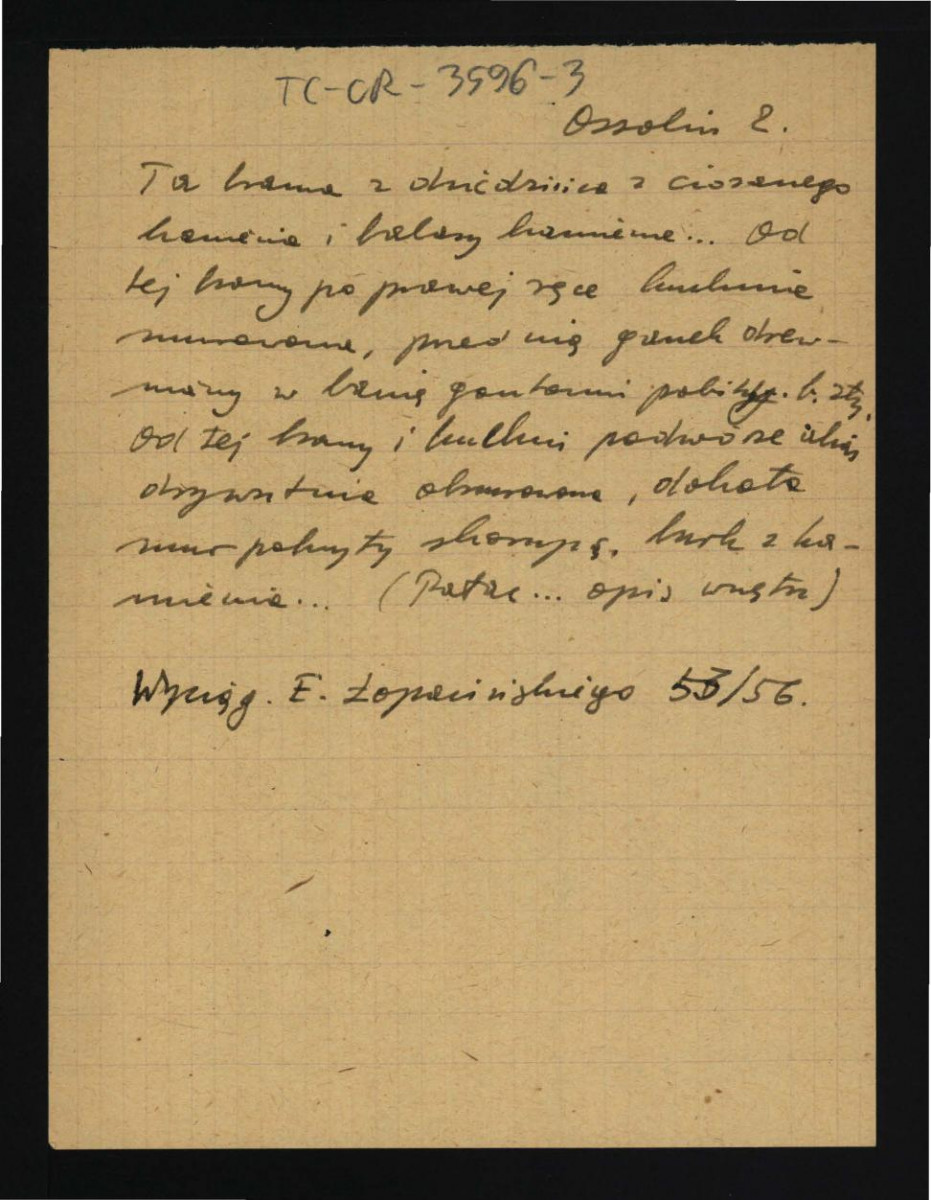 TC-CR-3596-3
Ossolin 2.
Ta brama z dziedzińca z ciosanego
kamienia i balasy kamienne... Od
tej bramy po prawej ręce kuchnia
murowana, przed nią ganek drew-
niany w banię gontami pobity. b. zły.
Od tej bramy i kuchni podwórze
obmurowane, dokoła
mur pokryty skarupą, bruk z ka-
mienia... (Pałac... opis wnętrz)
Wyciąg. E. Łopacińskiego 53/56.